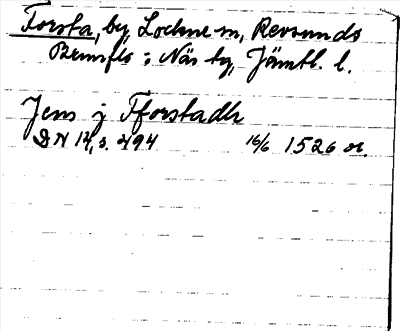 Torsta, by, Lockne sn, Revsunds
Brunflo o. Näs tg, Jämtl. l.
Jens j Tforstadh
DN 14, s. 494 16/6 1526 or.